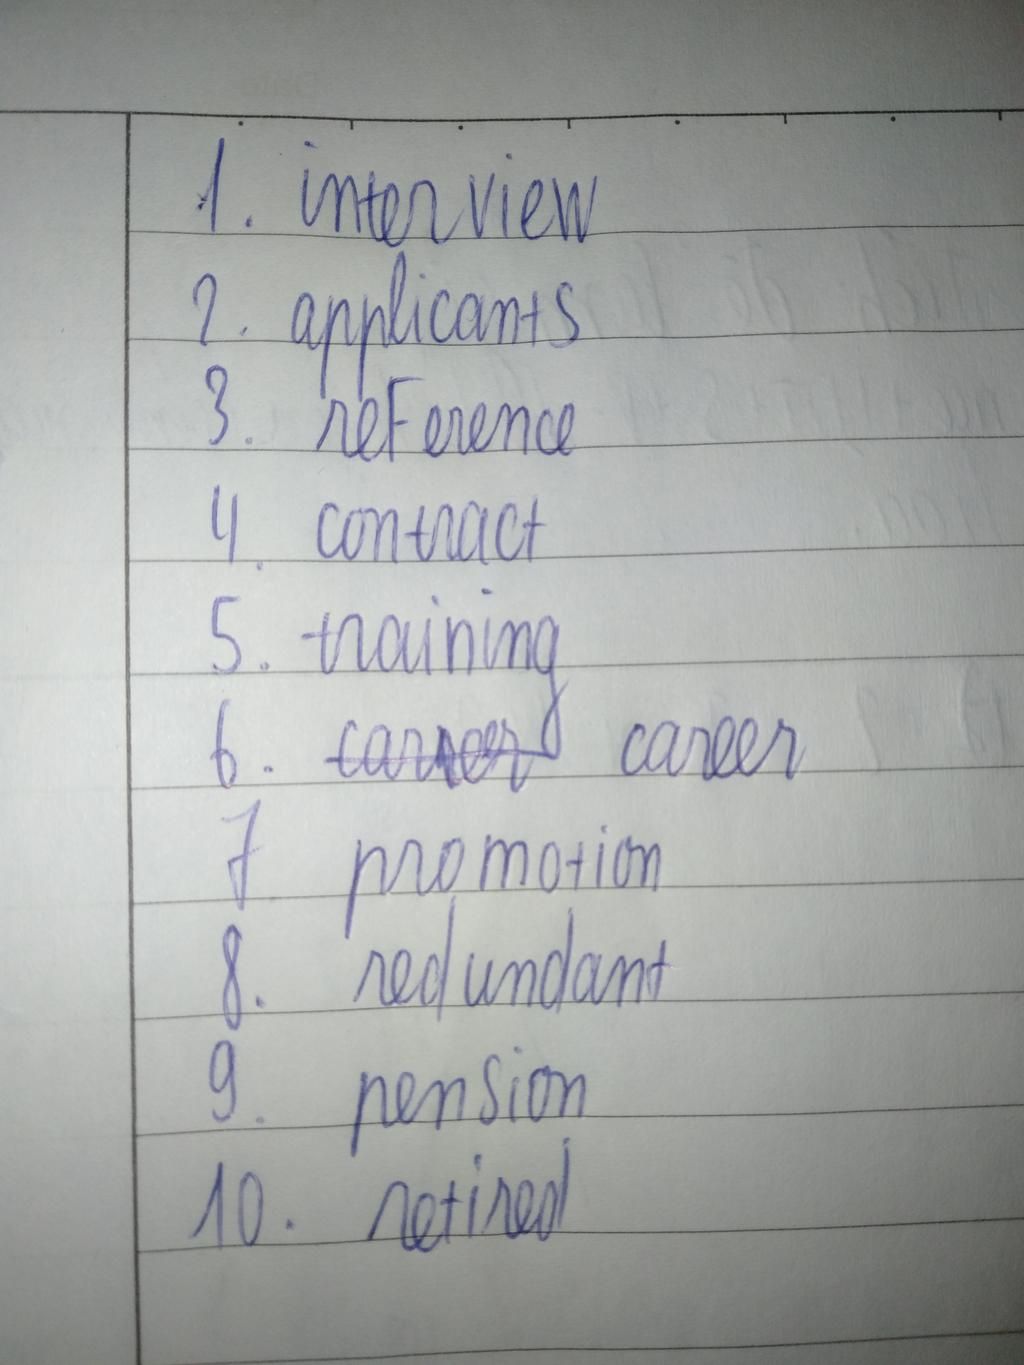 1. interview
2. applicants
3. reference
4. contract
5. training
6. career career
7 promotion
8. redundant
9. pension
10. retired